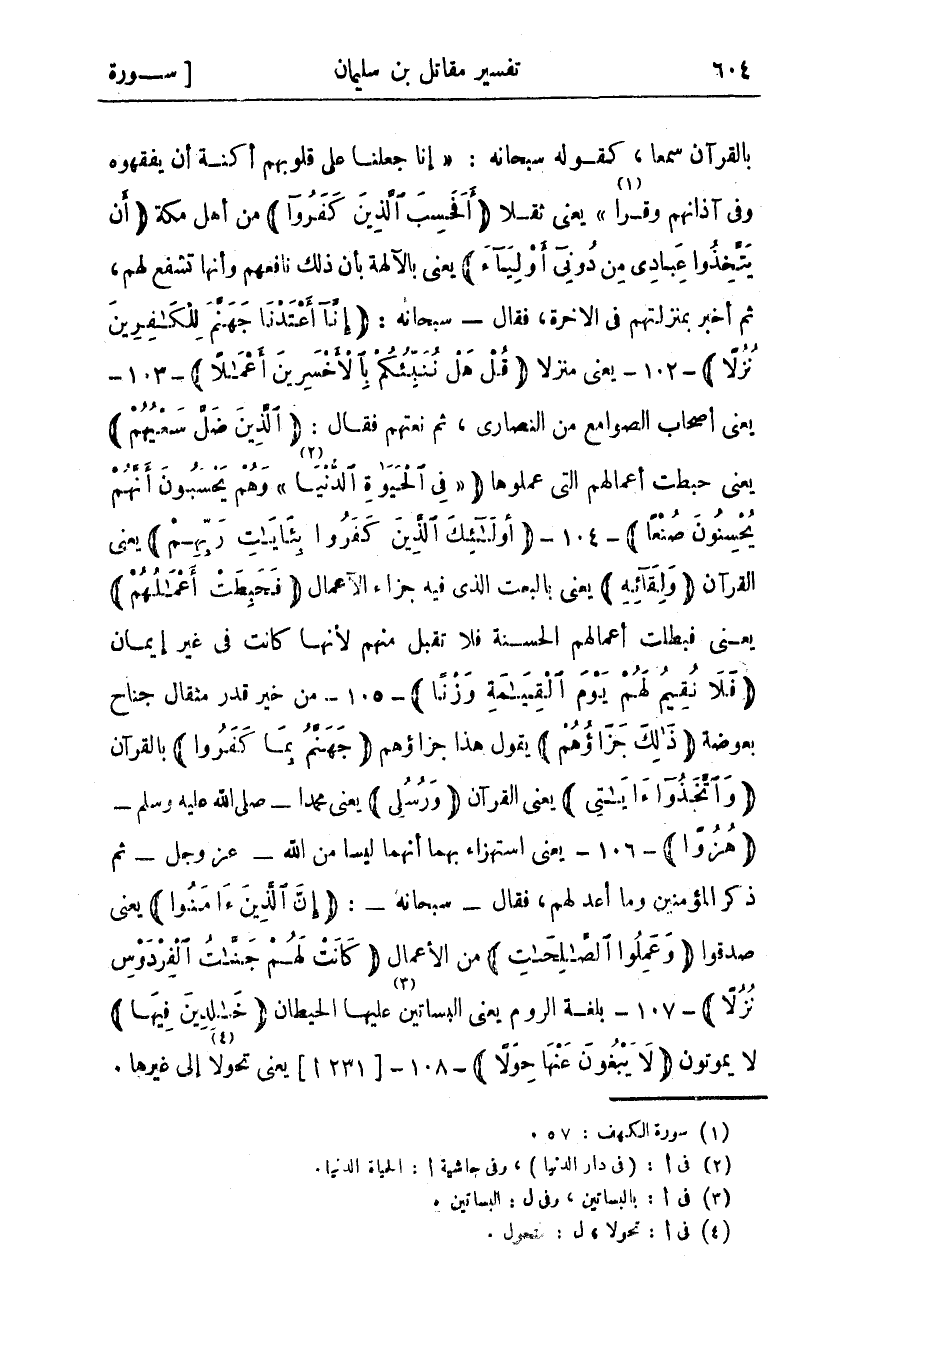 ٦٠٤ تفسير مقاتل بن سليمان [ ســورة
بالقرآن سمعا ، كقــوله سبحانه : « إنا جعلنــا على قلوبهم أكنــة أن يفقهوه
وفى آذانهم وقرا » (١) يعنى ثقــلا ﴿ أَفَحَسِبَ ٱلَّذِينَ كَفَرُوٓا ﴾ من أهل مكة ﴿ أَن
يَتَّخِذُوا عِبَادِى مِن دُونِىٓ أَوْلِيَآءَ ﴾ يعنى بالآلهة بأن ذلك نافعهم وأنها تشفع لهم ،
ثم أخبر بمنزلتهم فى الاخرة، فقال ـــ سبحانه : ﴿ إِنَّآ أَعْتَدْنَا جَهَنَّمَ لِلْكَـٰفِرِينَ
نُزُلًا ﴾ - ١٠٢ - يعنى منزلا ﴿ قُلْ هَلْ نُنَبِّئُكُمْ بِٱلْأَخْسَرِينَ أَعْمَـٰلًا ﴾ - ١٠٣ -
يعنى أصحاب الصوامع من النصارى ، ثم نعتهم فقــال : ﴿ ٱلَّذِينَ ضَلَّ سَعْيُهُمْ ﴾
يعنى حبطت أعمالهم التى عملوها ﴿ « فِى ٱلْحَيَوٰةِ ٱلدُّنْيَــا » (٢) وَهُمْ يَحْسَبُونَ أَنَّهُمْ
يُحْسِنُونَ صُنْعًا ﴾ - ١٠٤ - ﴿ أُولَـٰٓئِكَ ٱلَّذِينَ كَفَرُوا بِـَٔايَـٰتِ رَبِّهِــمْ ﴾ يعنى
القرآن ﴿ وَلِقَآئِهِ ﴾ يعنى بالبعث الذى فيه جزاء الأعمال ﴿ فَحَبِطَتْ أَعْمَـٰلُهُمْ ﴾
يعــنى فبطلت أعمالهم الحســنة فلا تقبل منهم لأنهــا كانت فى غير إيمــان
﴿ فَلَا نُقِيمُ لَهُمْ يَوْمَ ٱلْقِيَـٰمَةِ وَزْنًا ﴾ - ١٠٥ - من خير قدر مثقال جناح
بعوضة ﴿ ذَٰلِكَ جَزَآؤُهُمْ ﴾ يقول هذا جزاؤهم ﴿ جَهَنَّمُ بِمَــا كَفَرُوا ﴾ بالقرآن
﴿ وَٱتَّخَذُوٓا ءَايَـٰتِى ﴾ يعنى القرآن ﴿ وَرُسُلِى ﴾ يعنى محمدا ـــ صلى الله عليه وسلم ـــ
﴿ هُزُوًا ﴾ - ١٠٦ - يعنى استهزاء بهما أنهما ليسا من الله ـــ عز وجل ـــ ثم
ذكر المؤمنين وما أعد لهم، فقال ـــ سبحانه ـــ : ﴿ إِنَّ ٱلَّذِينَ ءَامَنُوا ﴾ يعنى
صدقوا ﴿ وَعَمِلُوا ٱلصَّـٰلِحَـٰتِ ﴾ من الأعمال ﴿ كَانَتْ لَهُــمْ جَنَّـٰتُ ٱلْفِرْدَوْسِ
نُزُلًا ﴾ - ١٠٧ - بلغــة الروم يعنى البساتين (٣) عليهــا الحيطان ﴿ خَـٰلِدِينَ فِيهَــا ﴾
لا يموتون ﴿ لَا يَبْغُونَ عَنْهَا حِوَلًا ﴾ - ١٠٨ - [ ٢٣١ أ ] يعنى تحولا (٤) إلى غيرها .
(١) سورة الكهف : ٥٧ .
(٢) فى أ : (فى دار الدنيا) ، وفى حاشية أ : الحياة الدنيا .
(٣) فى أ : بالبساتين ، وفى ل : البساتين .
(٤) فى أ : تحولا ، ل : تتحول .